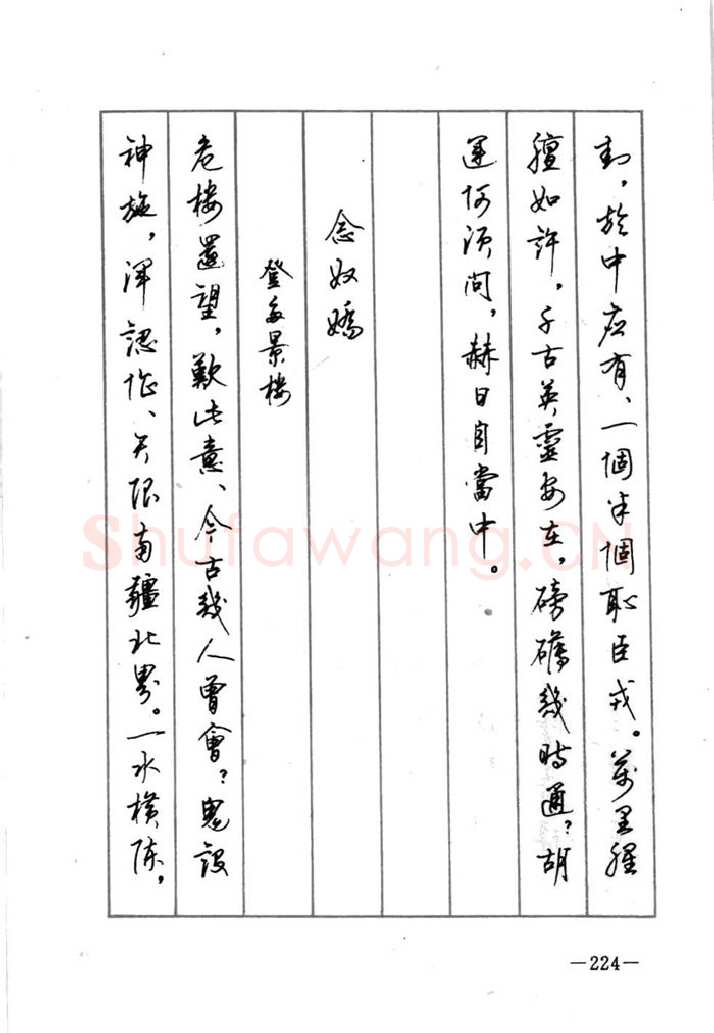 封，於中应有、一個半個恥臣戎。萬里腥
膻如許，千古英靈安在，磅礴幾時通？胡
運何须问，赫日自當中。
念奴嬌
登多景楼
危楼還望，歎此意、今古幾人曾會？鬼設
神施，浑認作、天限南疆北界。一水横陈，
—224—
Shufawang.CN